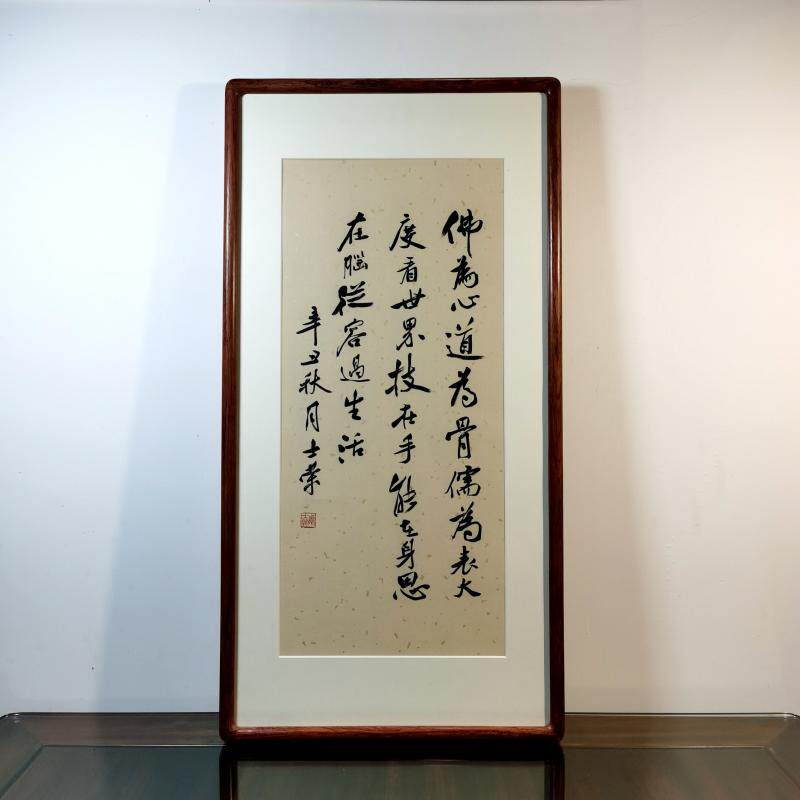 佛為心道為骨儒為表大
度看世界技在手能在身思
在腦從容過生活
辛丑秋月士荣